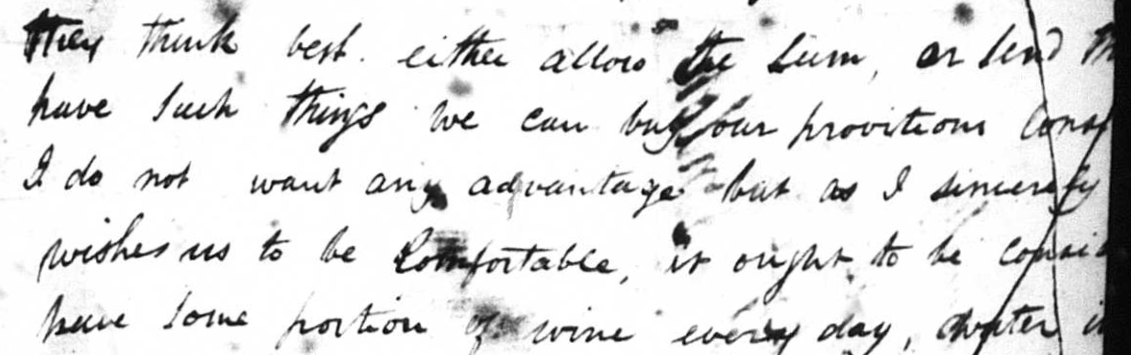 they think best. either allow the sum, or send th
have such things we can buy our provitions cons
I do not want any advantage but as I sincerely
wishes us to be Comfortable, it ought to be consid
have some portion of wine every day, water i